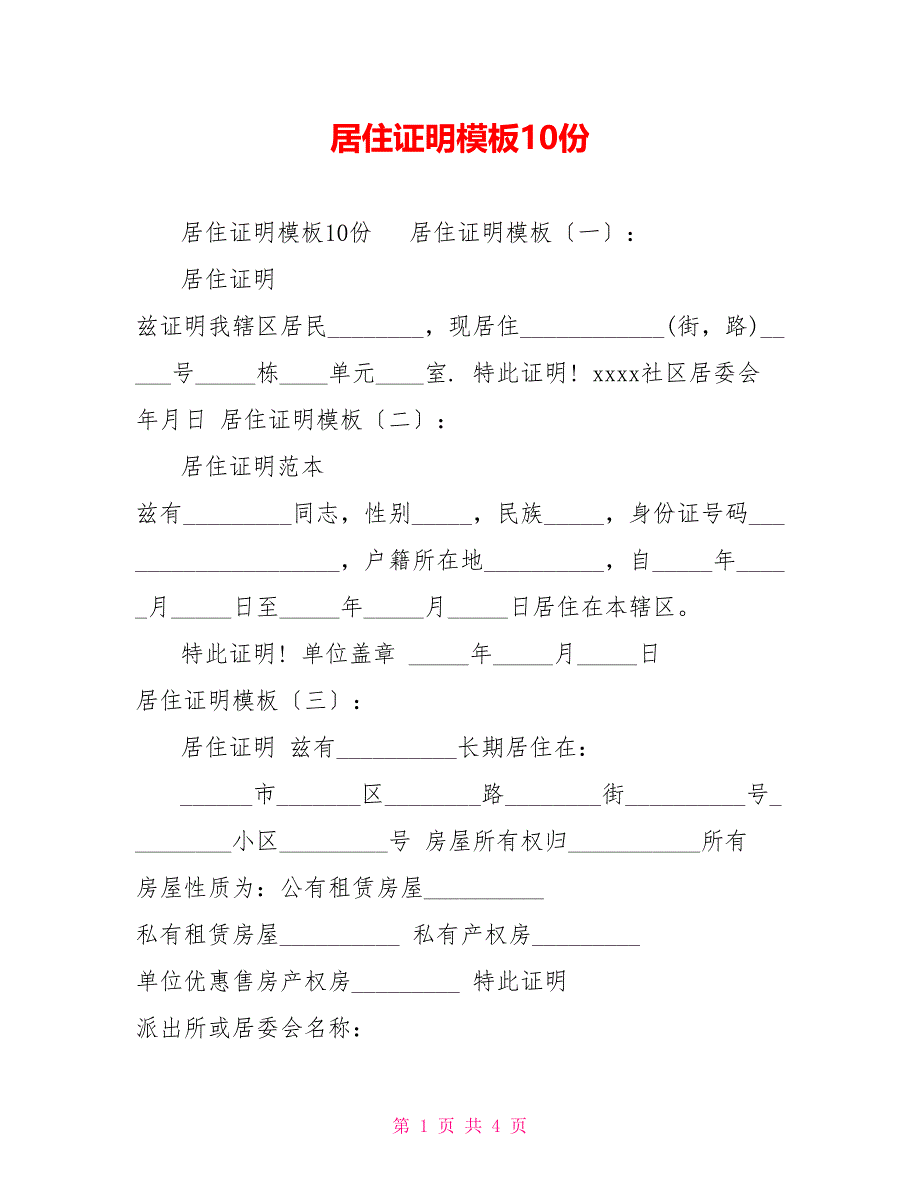 居住证明模板10份
居住证明模板10份 居住证明模板〔一〕:
居住证明
兹证明我辖区居民________，现居住____________(街，路)__
___号_____栋____单元____室. 特此证明! xxxx社区居委会
年月日 居住证明模板〔二〕:
居住证明范本
兹有_________同志，性别_____，民族_____，身份证号码___
_________________，户籍所在地__________，自_____年____
_月_____日至_____年_____月_____日居住在本辖区。
特此证明! 单位盖章 _____年_____月_____日
居住证明模板〔三〕:
居住证明 兹有__________长期居住在:
______市_______区________路________街__________号_
________小区_________号 房屋所有权归___________所有
房屋性质为: 公有租赁房屋__________
私有租赁房屋__________ 私有产权房_________
单位优惠售房产权房_________ 特此证明
派出所或居委会名称:
第 1 页 共 4 页